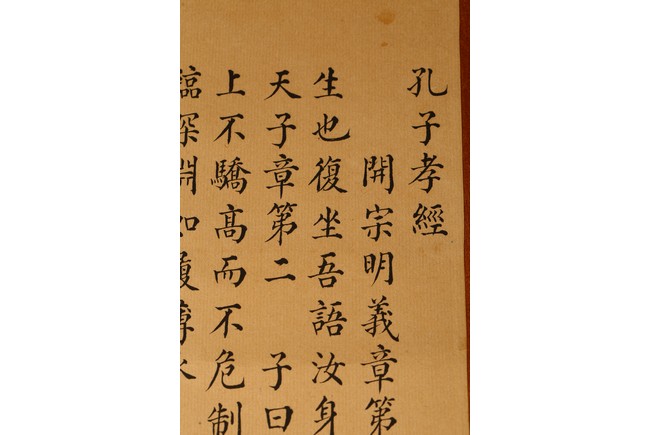 孔子孝經
開宗明義章第
生也復坐吾語汝身
天子章第二 子曰
上不驕高而不危制
深淵如履薄